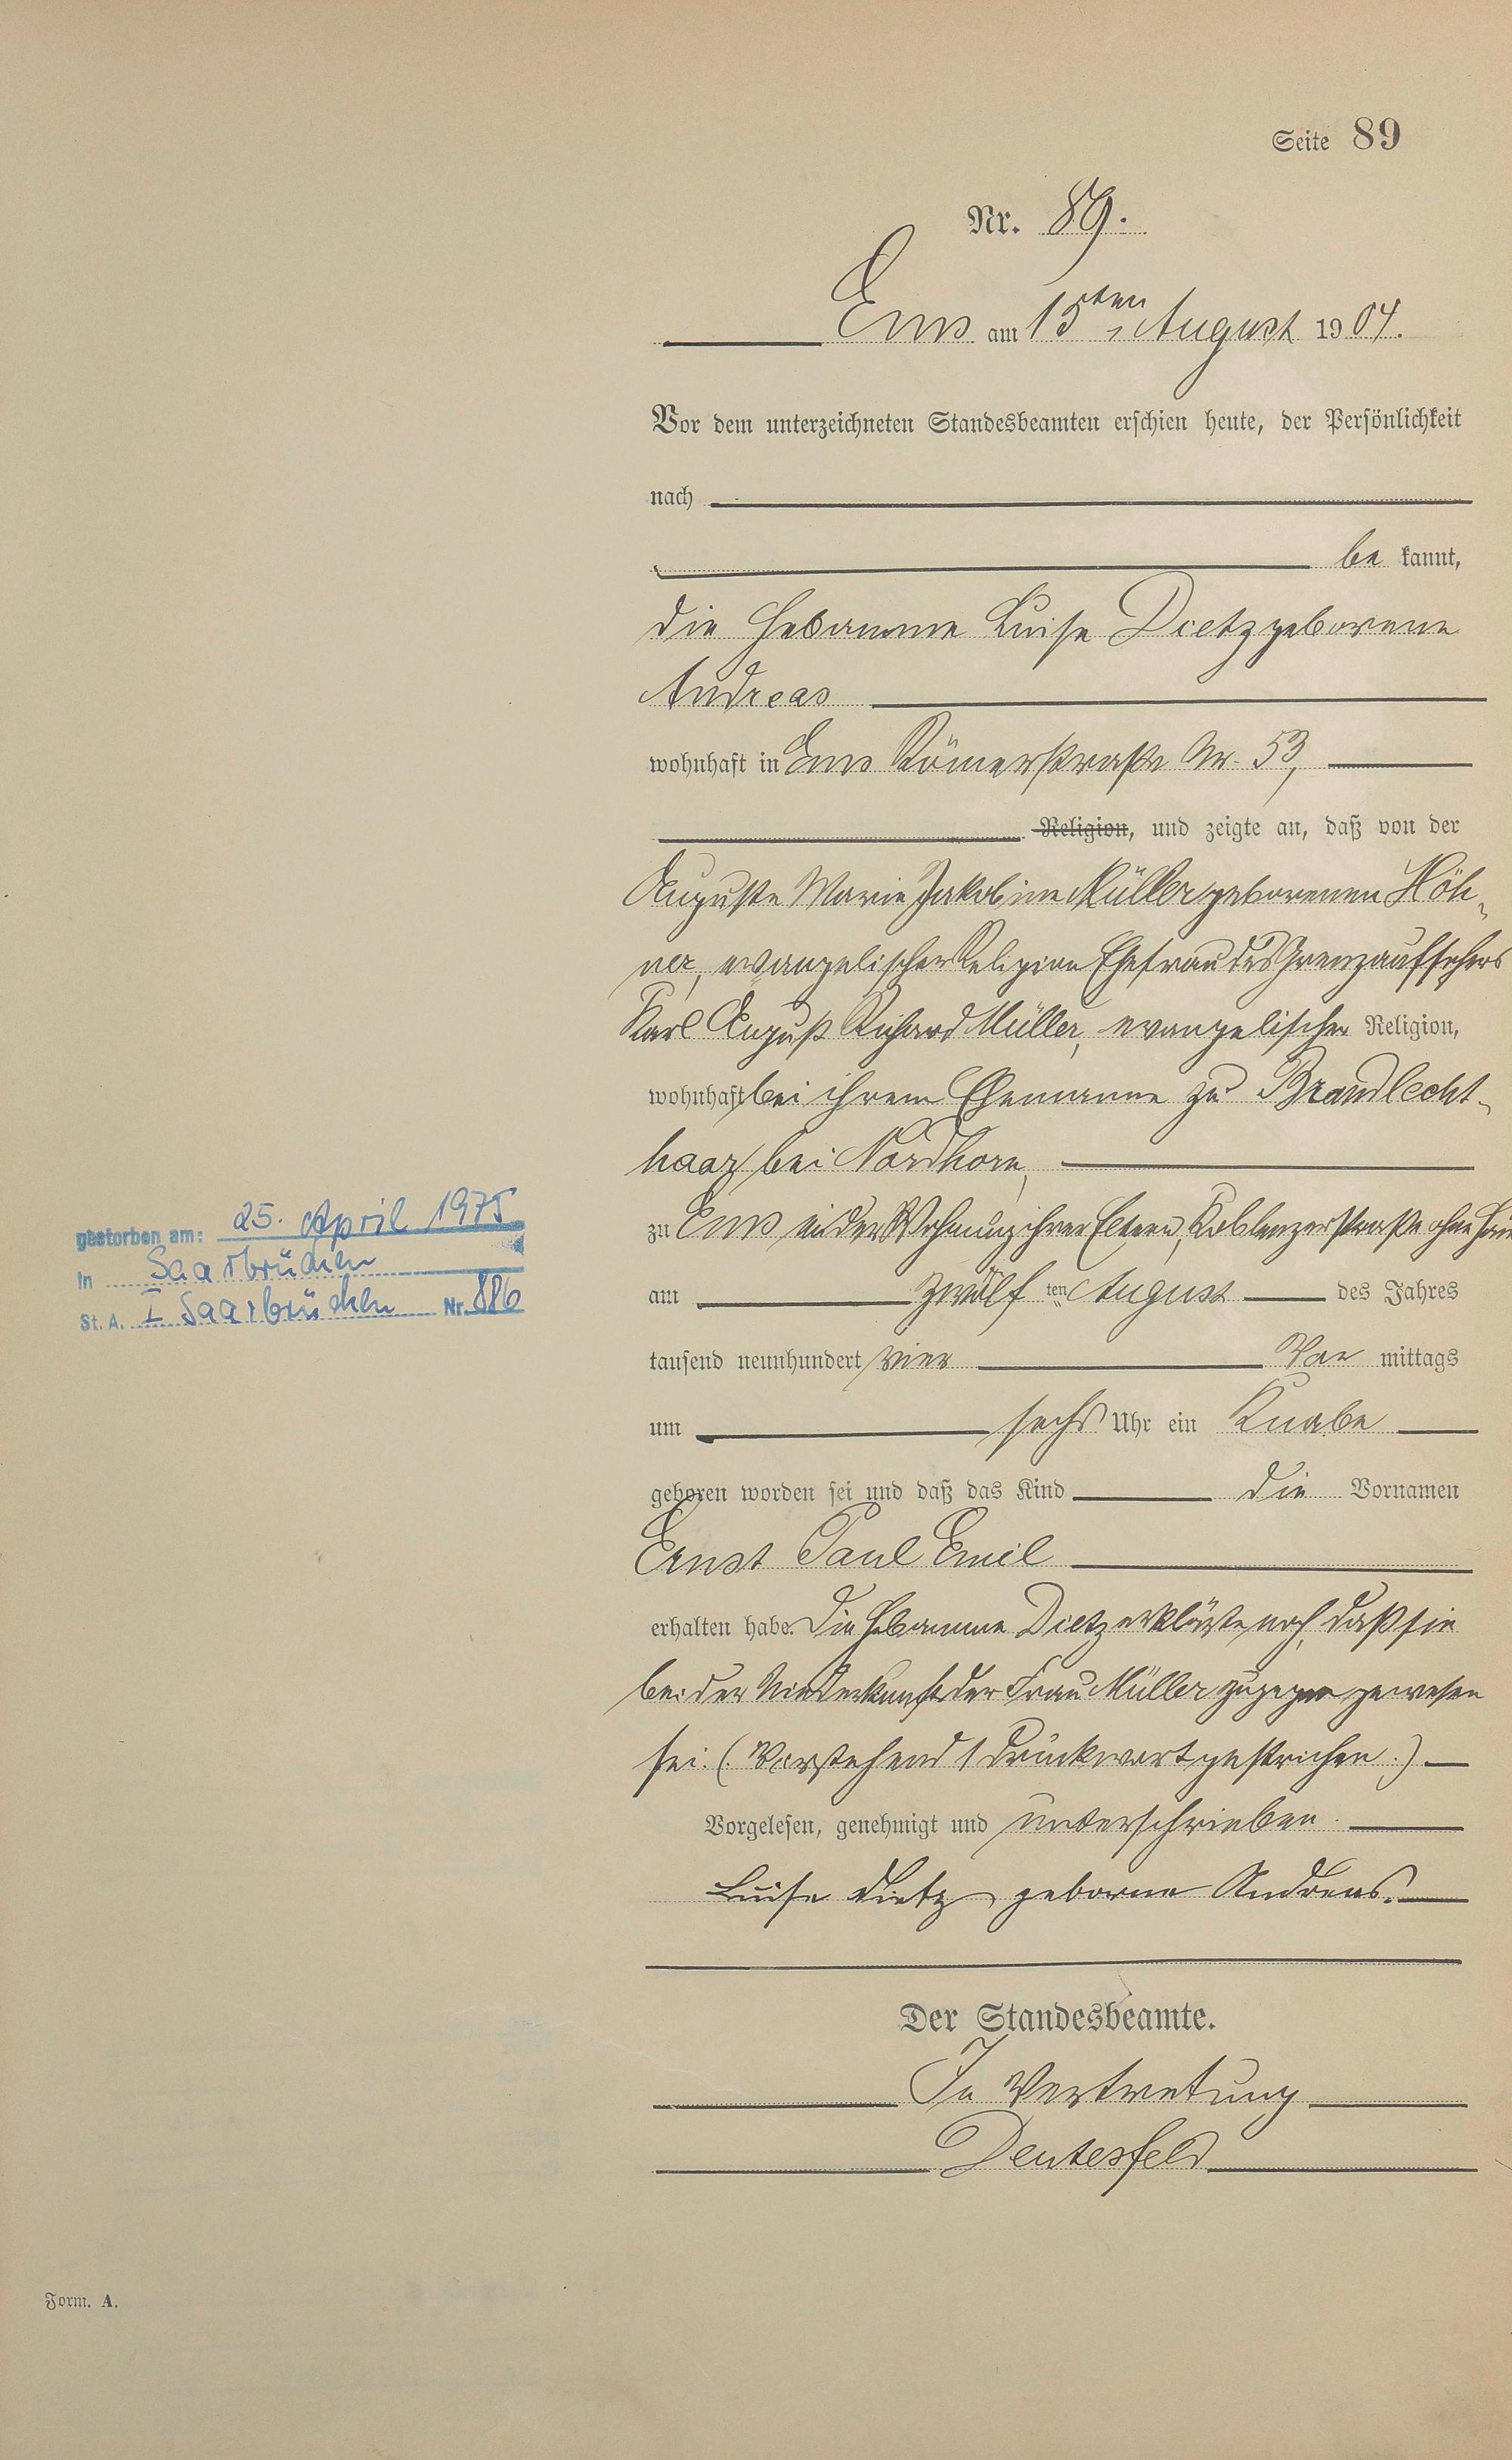 Seite 89
Nr. 89.
Ems am 15ten August 1904.
Vor dem unterzeichneten Standesbeamten erschien heute, der Persönlichkeit
nach
be kannt,
die Hebamme Luise Dietz geborene
Andreas
wohnhaft in Ems Römerstraße Nr. 53,
Religion, und zeigte an, daß von der
Auguste Marie Jakobine Müller geborenen Höh-
ner, evangelischer Religion Ehefrau des Grenzaufsehers
Karl August Richard Müller, evangelischer Religion,
wohnhaft bei ihrem Ehemanne zu Brandlecht-
haar bei Nordhorn,
zu Ems in der Wohnung ihrer Eltern, Koblenzerstraße ohne
am zwölf ten August des Jahres
tausend neunhundert vier Vor mittags
um sechs Uhr ein Knabe
geboren worden sei und daß das Kind die Vornamen
Ernst Paul Emil
erhalten habe. Die Hebamme Dietz erklärte noch, daß sie
bei der Niederkunft der Frau Müller zugegen gewesen
sei. (Vorstehend 1 Druckwort gestrichen.)
Vorgelesen, genehmigt und unterschrieben.
Luise Dietz geborne Andreas.
Der Standesbeamte.
In Vertretung
Deutesfeld
gestorben am: 25. April 1975
in Saarbrücken
St. A. I Saarbrücken Nr. 886
Form. A.